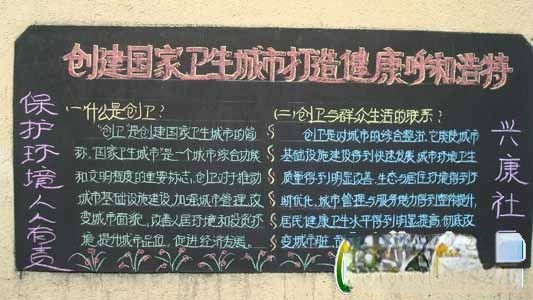 创建国家卫生城市打造健康呼和浩特
保护环境人人有责
一什么是创卫?
"创卫"是创建国家卫生城市的简
称,"国家卫生城市"是一个城市综合功能
和文明程度的重要标志,创卫对于推动
城市基础设施建设,加强城市管理,改
变城市面貌,改善人居环境和投资环
境,提升城市品位,促进经济发展
(二)创卫与群众生活的联系?
创卫是对城市的综合整治,它能使城市
基础设施建设得到快速发展,城市环境卫生
质量得到明显改善,生态与居住环境得到不
断优化,城市管理与服务能力得到整体提升,
居民健康卫生水平得到明显提高,彻底改
变城市脏
兴康社